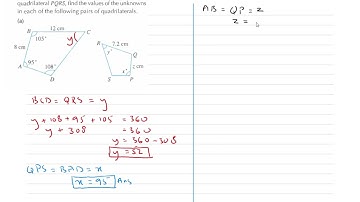 quadrilateral PQRS, find the values of the unknowns
in each of the following pairs of quadrilaterals.
(a)
B 12 cm C
105° y
8 cm
A 95° 108°
D
R 7.2 cm
y° Q
z cm
x°
S P
BCD = QRS = y
y + 108 + 95 + 105 = 360
y + 308 = 360
y = 360 - 308
y = 52
QPS = BAD = x
x = 95° Ans
AB = QP = z
z =